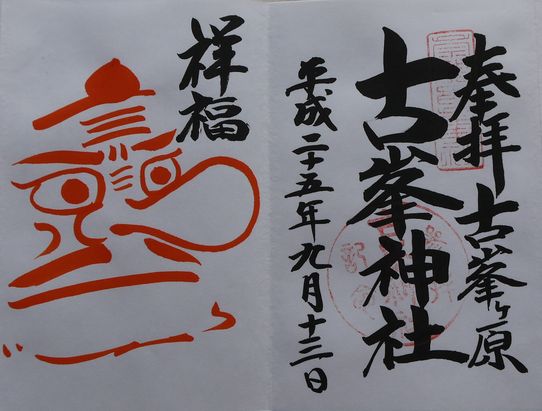 奉拝 古峯ヶ原
古峯神社
平成二十五年九月十三日
祥福